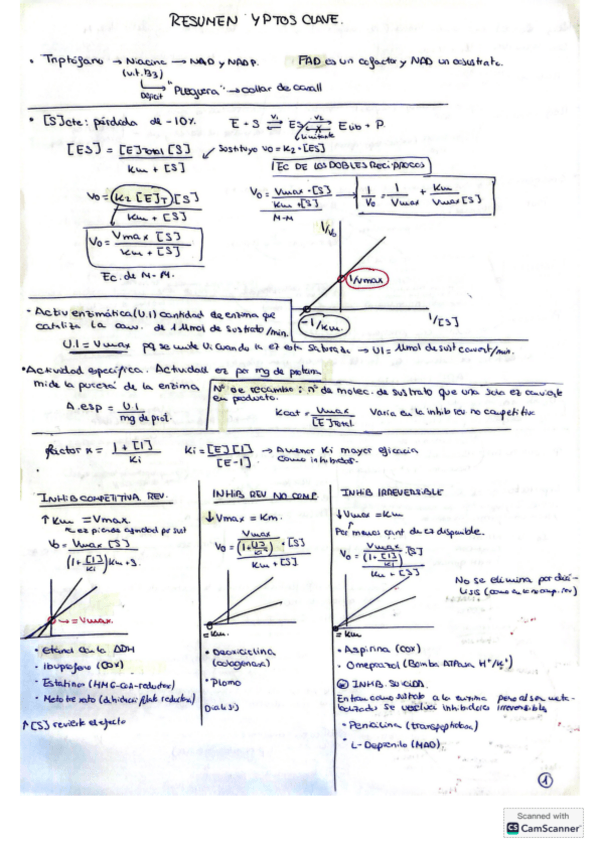 RESUMEN Y PTOS CLAVE.
• Triptófano → Niacina → NAD y NADP. FAD es un cofactor y NAD un cosustrato.
(vit. B3)
Déficit "Pelagra" → collar de casall
• [S]cte: pérdida de -10% E + S ⇌ ES ⇌ Elib + P.
V1 V2
Limitante
[ES] = [E]Total [S] / Km + [S] Sustituyo V0 = K2 · [ES]
EC DE LOS DOBLES RECÍPROCOS
V0 = K2 [E]T [S] / Km + [S] V0 = Vmax · [S] / Km + [S] → 1/V0 = 1/Vmax + Km / Vmax [S]
M-M
V0 = Vmax [S] / Km + [S]
Ec. de M-M.
1/V0
1/Vmax
-1/Km.
1/[S]
• Activ enzimática (U.I) cantidad de enzima que
cataliza la conv. de 1 µmol de sustrato/min.
U.I = Vmax pq se mide U.I cuando la ez está saturada → UI = 1µmol de sust convert/min.
• Actividad específica. Actividad ez por mg de proteína
mide la pureza de la enzima
Nº de recambio: nº de molec. de sustrato que una sola ez convierte
en producto.
A.esp = U.I / mg de prot.
Kcat = Vmax / [E]Total Varía en la inhib rev no competitiva
factor α = 1 + [I] / Ki Ki = [E][I] / [E-I] → A menor Ki mayor eficacia
como inhibidor.
INHIB COMPETITIVA REV.
↑ Km = Vmax.
ez pierde afinidad por sust
V0 = Vmax [S] / (1+[I]/Ki) Km + S
= Vmax
• etanol con la ADH
• Ibuprofeno (COX)
• Estatinas (HMG-CoA-reductasa)
• Metotrexato (dihidrofolato reductasa)
↑ [S] revierte el efecto
INHIB REV NO COMP
↓ Vmax = Km.
V0 = Vmax / (1+[I]/Ki) · [S] / Km + [S]
= Km
• Doxiciclina
(colagenasa)
• Plomo
INHIB IRREVERSIBLE
↓ Vmax = Km
Por menos cant de ez disponible.
V0 = Vmax / (1+[I]/Ki) · [S] / Km + [S]
No se elimina por diáli-
sis (como en la no comp. rev)
= Km
• Aspirina (COX)
• Omeprazol (Bomba ATPasa H⁺/K⁺)
INHIB. SUICIDA.
Entran como sustrato a la enzima pero al ser meta-
bolizado se vuelven inhibidores irreversibles
• Penicilina (transpeptidasa)
• L-Deprenilo (MAO)
1
Scanned with
CS CamScanner